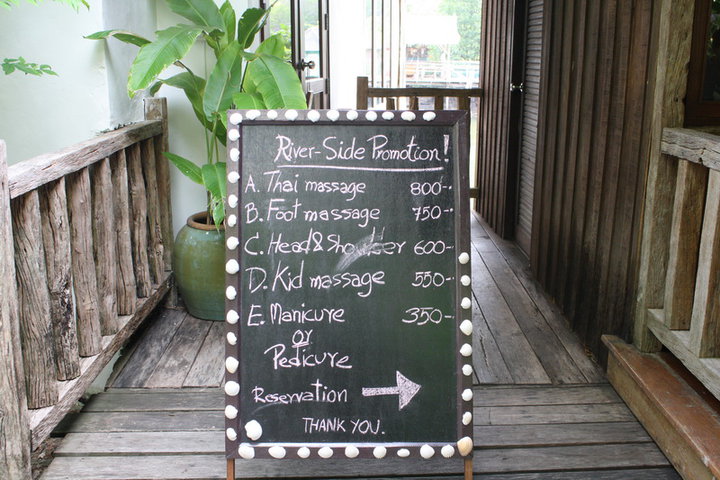 River-Side Promotion!
A. Thai massage 800.-
B. Foot massage 750-
C. Head & Shoulder 600-
D. Kid massage 550-
E. Manicure 350-
or
Pedicure
Reservation
THANK YOU.